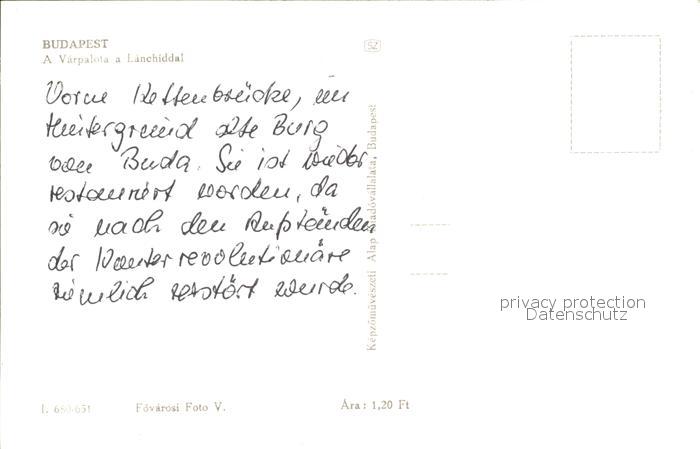 BUDAPEST
A Várpalota a Lánchíddal
SZ
Vorne Kettenbrücke, im
Hintergrund alte Burg
von Buda. Sie ist wieder
restauriert worden, da
sie nach den Aufständen
der Konterrevolutionäre
ziemlich zerstört wurde.
Képzőművészeti Alap Kiadóvállalata, Budapest
privacy protection
Datenschutz
I. 680-651 Fővárosi Foto V. Ára: 1,20 Ft